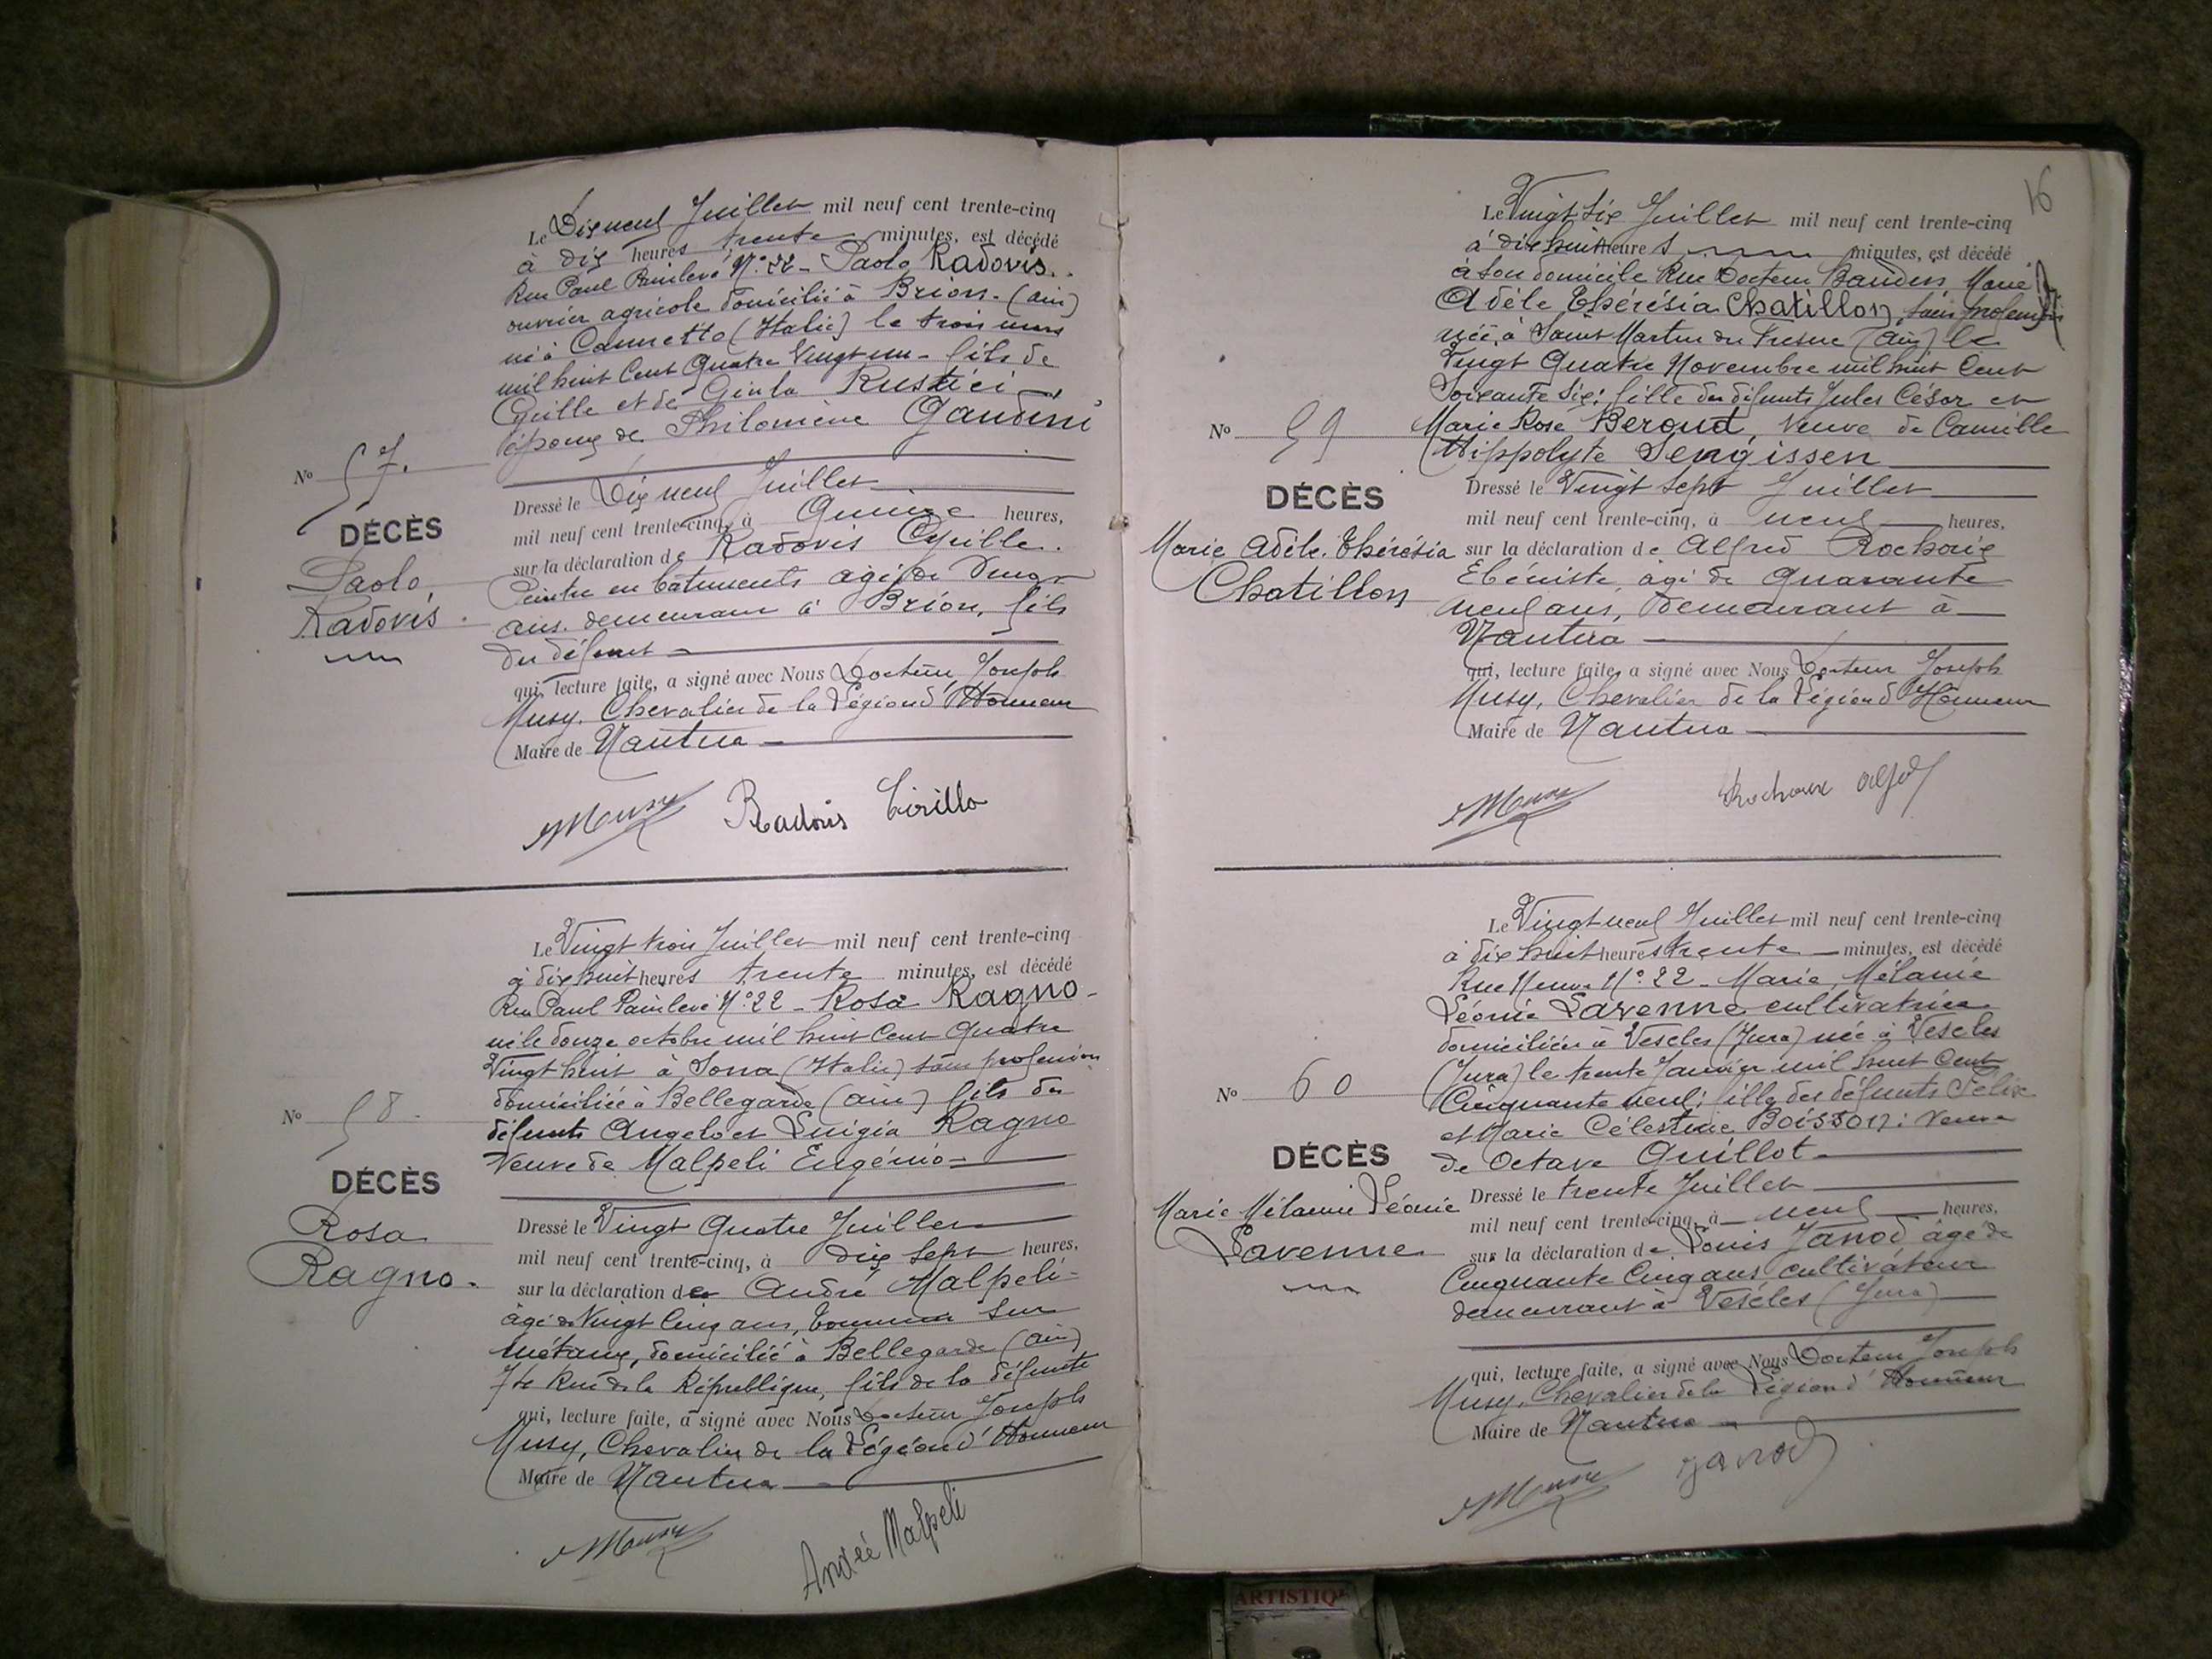 Le Dix neuf Juillet mil neuf cent trente-cinq
à dix heures trente minutes, est décédé
Rue Paul Painlevé N° 22 - Paolo Radovis.
ouvrier agricole domicilié à Brion. (ain)
né à Cannetto (Italie) le trois mars
mil huit Cent Quatre Vingt un - fils de
Cyrille et de Giula Rustici -
époux de Philomène Gaudini
No 57.
DÉCÈS
Paolo,
Radovis.
Dressé le Dix neuf Juillet
mil neuf cent trente-cinq, à Quinze heures,
sur la déclaration de Radovis Cyrille.
Peintre en bâtiments âgé de Vingt
ans. demeurant à Brion, fils
du défunt
qui, lecture faite, a signé avec Nous Docteur Joseph
Musy. Chevalier de la Légion d'Honneur
Maire de Nantua
Musy Radovis Cirillo
Le Vingt trois Juillet mil neuf cent trente-cinq
à dix huit heures trente minutes, est décédé
Rue Paul Painlevé N° 22 - Rosa Ragno -
née le douze octobre mil huit Cent Quatre
Vingt huit à (Italie) sans profession
domiciliée à Bellegarde (ain) fils des
défunts Angelo et Luigia Ragno
Veuve de Malpeli Eugénio
No 58.
DÉCÈS
Rosa
Ragno.
Dressé le Vingt Quatre Juillet
mil neuf cent trente-cinq, à dix sept heures,
sur la déclaration de André Malpeli
âgé de Vingt Cinq ans, Tourneur sur
métaux, domicilié à Bellegarde (ain)
Rue de la République, fils de la défunte
qui, lecture faite, a signé avec Nous Docteur Joseph
Musy, Chevalier de la Légion d'Honneur
Maire de Nantua
Musy André Malpeli
16
Le Vingt Six Juillet mil neuf cent trente-cinq
à dix huit heures minutes, est décédé
à son domicile Rue Docteur Baudin, Marie
Adèle Thérésia Chatillon, sans profession
née à Saint Martin du Fresne (ain) le
Vingt Quatre Novembre mil huit Cent
Soixante Six; fille des défunts Jules César et
Marie Rose Beroud, Veuve de Camille
Hippolyte Sengissen
No 59
DÉCÈS
Marie Adèle. Thérésia
Chatillon
Dressé le Vingt sept Juillet
mil neuf cent trente-cinq, à neuf heures,
sur la déclaration de Alfred Rochoix
Ebéniste, âgé de Quarante
neuf ans, demeurant à
Nantua
qui, lecture faite, a signé avec Nous Docteur Joseph
Musy, Chevalier de la Légion d'Honneur
Maire de Nantua
Musy
Le Vingt neuf Juillet mil neuf cent trente-cinq
à dix huit heures trente minutes, est décédé
Rue Neuve N° 22 - Marie, Mélanie
Léonie Lavenne cultivatrice
domiciliée à Vescles (Jura) née à Vescles
(Jura) le trente Janvier mil huit Cent
Cinquante neuf; fille des défunts Félix
et Marie Célestine Boisson; Veuve
de Octave Guillot
No 60
DÉCÈS
Marie Mélanie Léonie
Lavenne
Dressé le trente Juillet
mil neuf cent trente-cinq, à neuf heures,
sur la déclaration de Louis Janod âgé de
Cinquante Cinq ans, cultivateur
demeurant à Vescles (Jura)
qui, lecture faite, a signé avec Nous Docteur Joseph
Musy, Chevalier de la Légion d'Honneur
Maire de Nantua
Musy Janod
ARTISTIQ